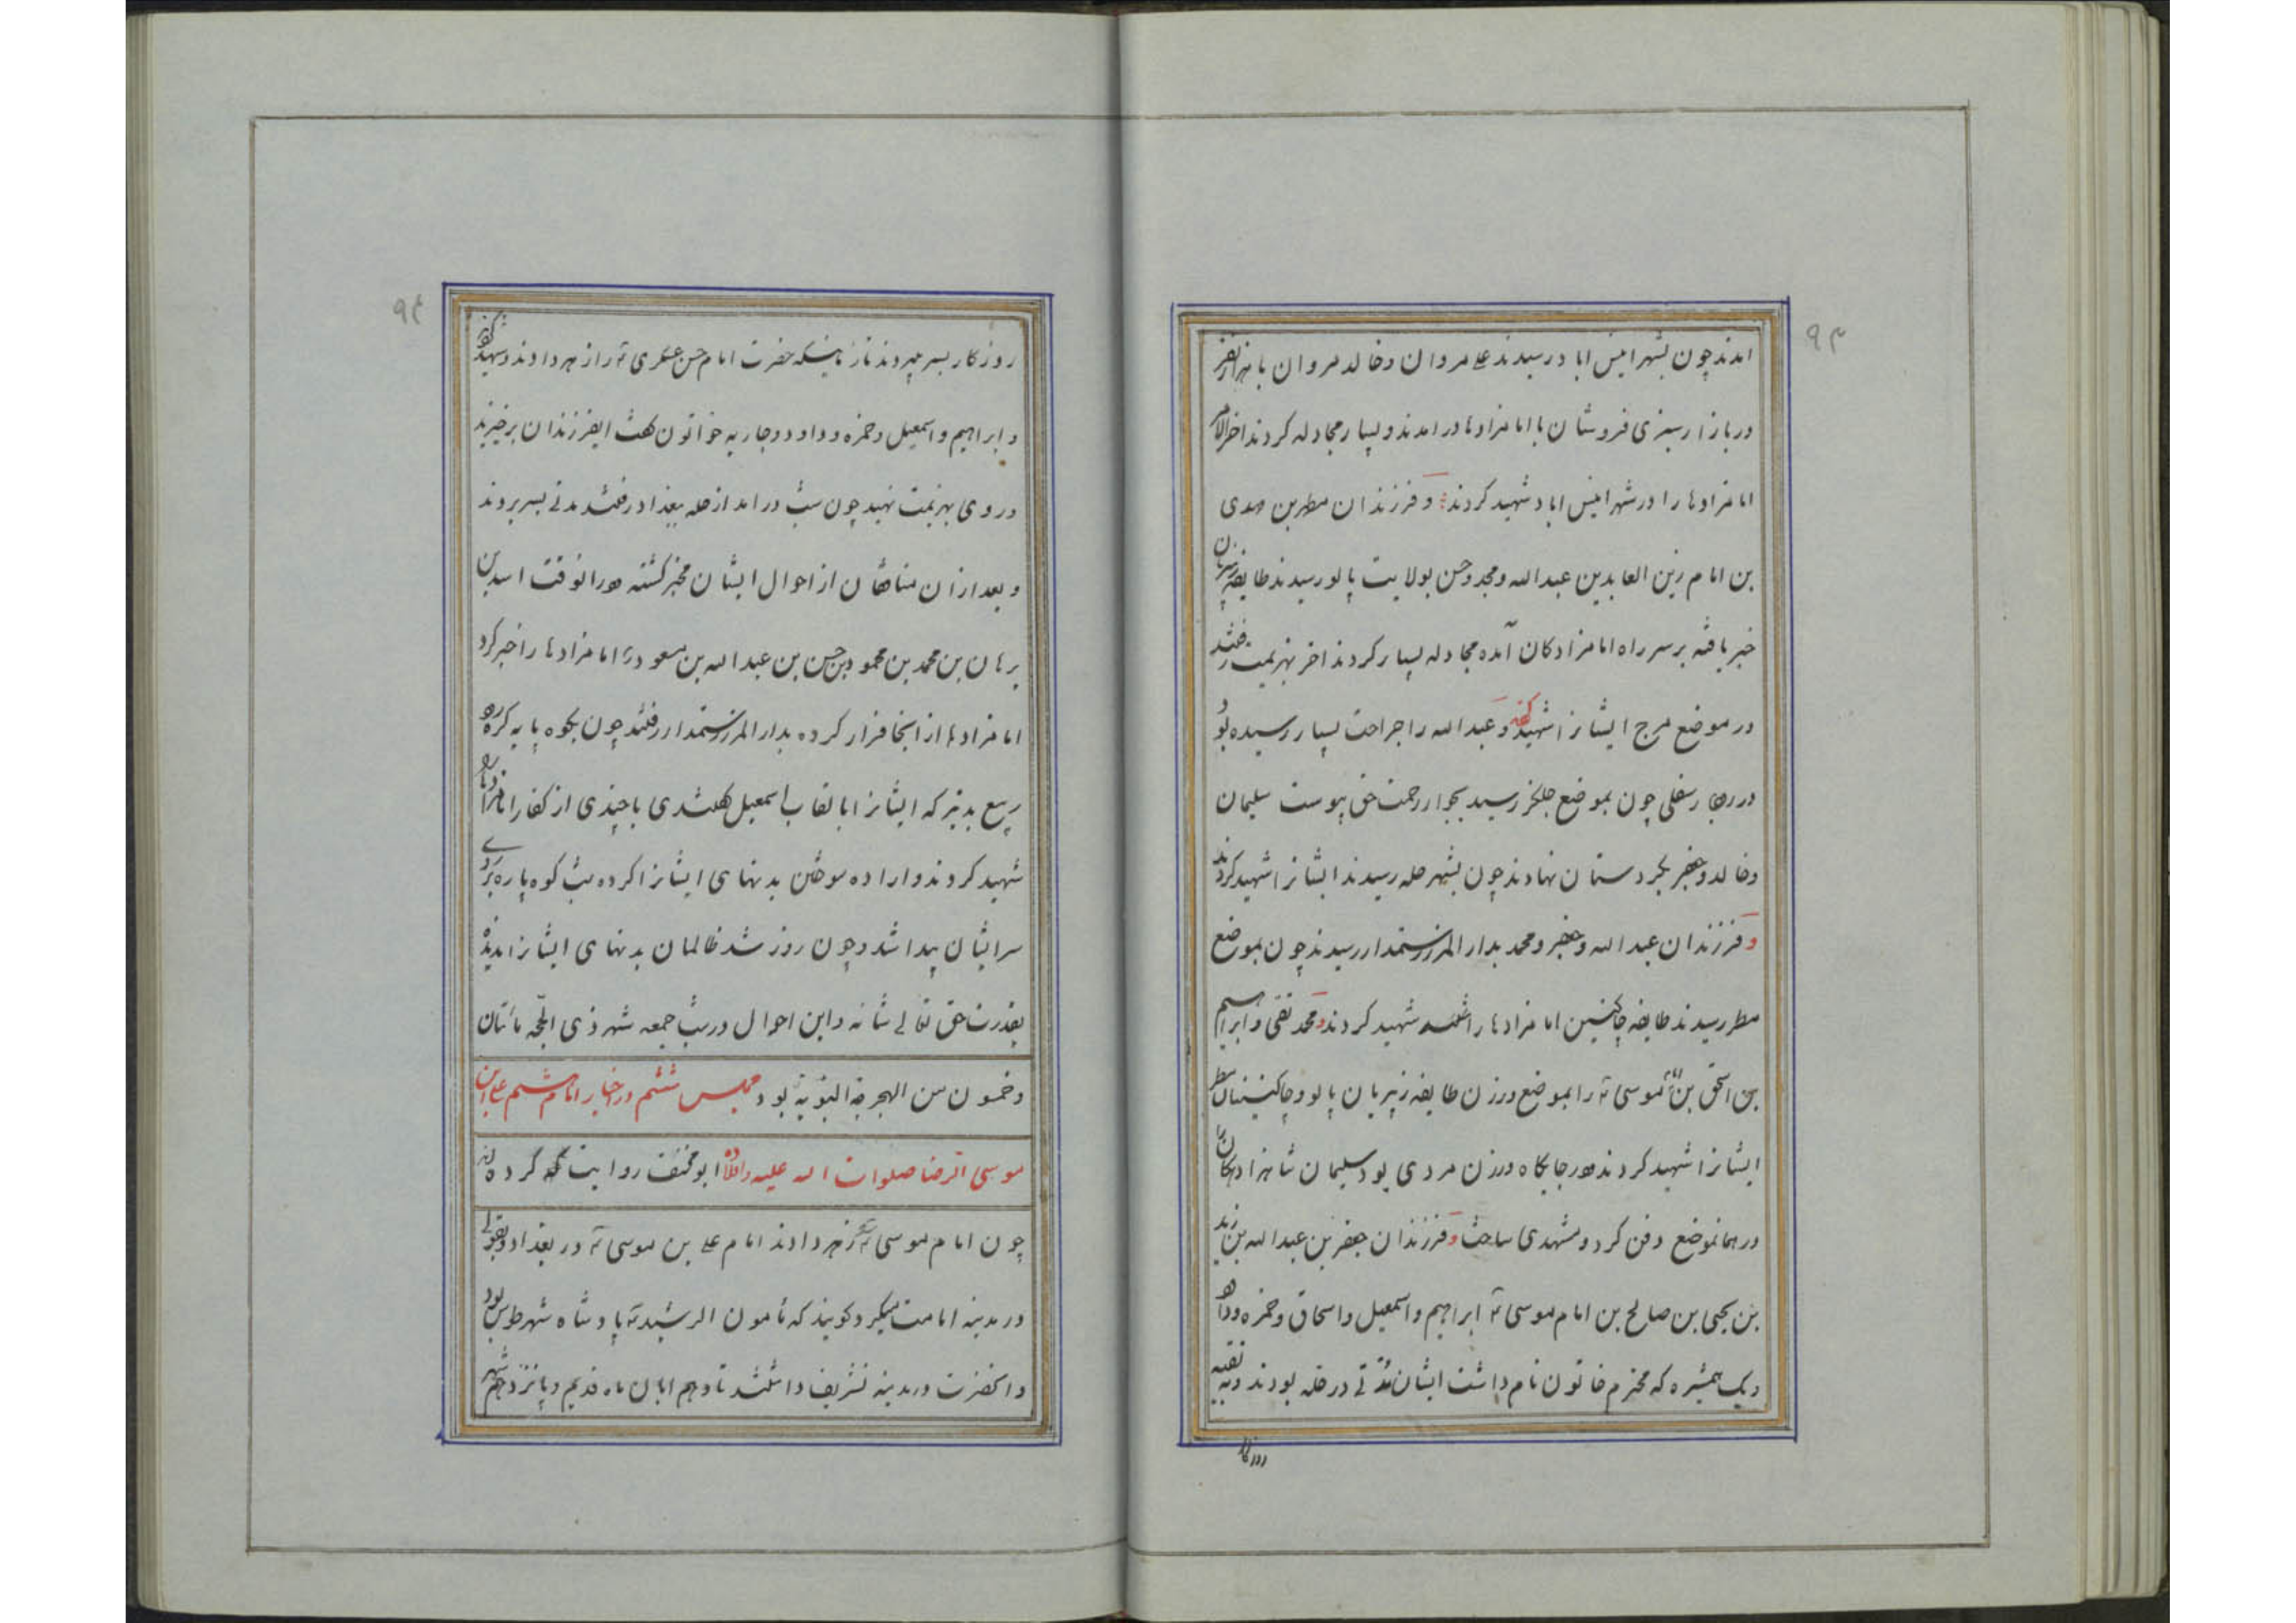 ۹۳
امدند چون بشهر انیس اباد رسیدند علی مروان و خالد مروان با هزار نفر
در بازار سبزی فروشان با امامزادها درامدند و بسیار مجادله کردند اخرالامر
امامزادها را در شهر انیس اباد شهید کردند و فرزندان مطهر بن مهدی
بن امام زین العابدین عبدالله و محمد و حسن بولایت پالو رسیدند طایفه
خبر یافته بر سر راه امامزادکان آمده مجادله بسیار کردند اخر بهزیمت رفتند
در موضع مرج ایشانرا شهید کردند و عبدالله را جراحت بسیار رسیده بود
در رهجار سفلی چون بموضع رسید بجوار رحمت حق پیوست سلیمان
و خالد و جعفر بکردستان نهادند چون بشهر حله رسیدند ایشانرا شهید کردند
و فرزندان عبدالله و جعفر و محمد بدار المرز رستمدار رسیدند چون بموضع
مطر رسیدند طایفه چاکنیین امامزادها را شهید کردند و محمد تقی و ابراهیم
بن اسحق بن امام موسی را بموضع ورزن طایفه زپریان پالو و
ایشانرا شهید کردند در جایکاه ورزن مردی بود سلیمان شاهزادکان را
در همانموضع دفن کرد و مشهدی ساخت و فرزندان جعفر بن عبدالله بن زید
بن یحیی بن صالح بن امام موسی ابراهیم و اسمعیل و اسحاق و حمزه و داود
و یک همشیره که محترم خاتون نام داشت ایشان مدتی در حله بودند و تقیه
روزکار
۹۴
روزکار بسر میبردند تا زمانیکه حضرت امام حسن عسکری را زهر دادند و شهید کردند
و ابراهیم و اسمعیل و حمزه و داود و جاریه خواتون گفت ایفرزندان برخیزید
و روی بهزیمت نهید چون شب درامد از حله ببغداد رفتند مدتی بسر بردند
و بعد ازان منافقان از احوال ایشان مخبر کشته درانوقت اسد بن
برهان بن محمد بن محمود بن حسن بن عبدالله بن مسعود امامزادها را خبر کرد
امامزادها از انجا فرار کرده بدار المرز رستمدار رفتند چون بکوه پایه کره رود
ربیع بدتیر که ایشانرا بالقاب اسمعیل با چندی از کفار امامزادها را
شهید کردند و اراده سوختن بدنهای ایشانرا کرده شب کوه پاره بر روی
سر ایشان پیدا شد و چون روز شد ظالمان بدنهای ایشانرا ندیدند
بقدرت حق تعالی شانه و این احوال در شب جمعه شهر ذی الحجه مأتان
و خمسون من الهجرة النبویة بود مجلس ششم در اخبار امام هشتم علی بن
موسی الرضا صلوات الله علیه و اولاده ابو مخنف روایت کرده که
چون امام موسی را زهر دادند امام علی بن موسی در بغداد و بقولی
در مدینه امامت میکرد و کویند که مأمون الرشید پادشاه شهر طوس بود
و انحضرت در مدینه تشریف داشتند تا دهم ابان ماه قدیم و پانزدهم شهر